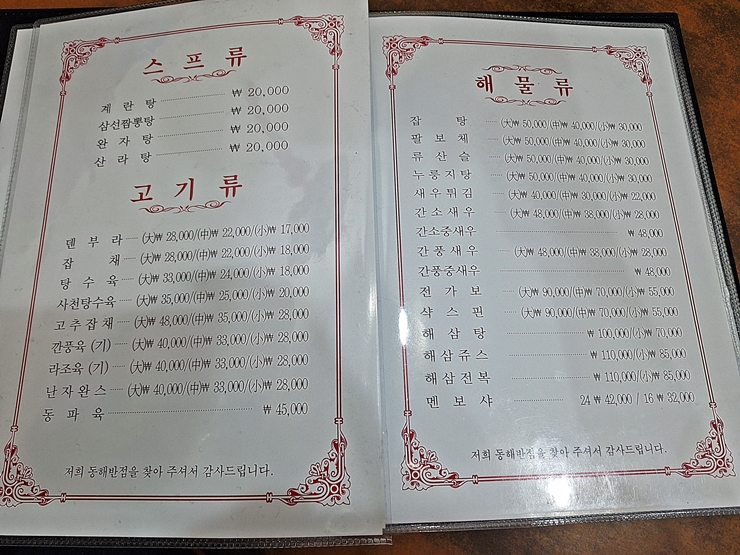 스프류
계란탕 ₩ 20,000
삼선짬뽕탕 ₩ 20,000
완자탕 ₩ 20,000
산라탕 ₩ 20,000
고기류
덴부라 (大)₩ 28,000/(中)₩ 22,000/(小)₩ 17,000
잡채 (大)₩ 28,000/(中)₩ 22,000/(小)₩ 18,000
탕수육 (大)₩ 33,000/(中)₩ 24,000/(小)₩ 18,000
사천탕수육 (大)₩ 35,000/(中)₩ 25,000/(小)₩ 20,000
고추잡채 (大)₩ 48,000/(中)₩ 35,000/(小)₩ 28,000
깐풍육 (기) (大)₩ 40,000/(中)₩ 33,000/(小)₩ 28,000
라조육 (기) (大)₩ 40,000/(中)₩ 33,000/(小)₩ 28,000
난자완스 (大)₩ 40,000/(中)₩ 33,000/(小)₩ 28,000
동파육 ₩ 45,000
저희 동해반점을 찾아 주셔서 감사드립니다.
해물류
잡탕 (大)₩ 50,000/(中)₩ 40,000/(小)₩ 30,000
팔보채 (大)₩ 50,000/(中)₩ 40,000/(小)₩ 30,000
류산슬 (大)₩ 50,000/(中)₩ 40,000/(小)₩ 30,000
누룽지탕 (大)₩ 50,000/(中)₩ 40,000/(小)₩ 30,000
새우튀김 (大)₩ 40,000/(中)₩ 30,000/(小)₩ 22,000
간소새우 (大)₩ 48,000/(中)₩ 38,000/(小)₩ 28,000
간소중새우 ₩ 48,000
간풍새우 (大)₩ 48,000/(中)₩ 38,000/(小)₩ 28,000
간풍중새우 ₩ 48,000
전가보 (大)₩ 90,000/(中)₩ 70,000/(小)₩ 55,000
샥스핀 (大)₩ 90,000/(中)₩ 70,000/(小)₩ 55,000
해삼탕 ₩ 100,000/(小)₩ 70,000
해삼쥬스 ₩ 110,000/(小)₩ 85,000
해삼전복 ₩ 110,000/(小)₩ 85,000
멘보샤 24 ₩ 42,000 / 16 ₩ 32,000
저희 동해반점을 찾아 주셔서 감사드립니다.